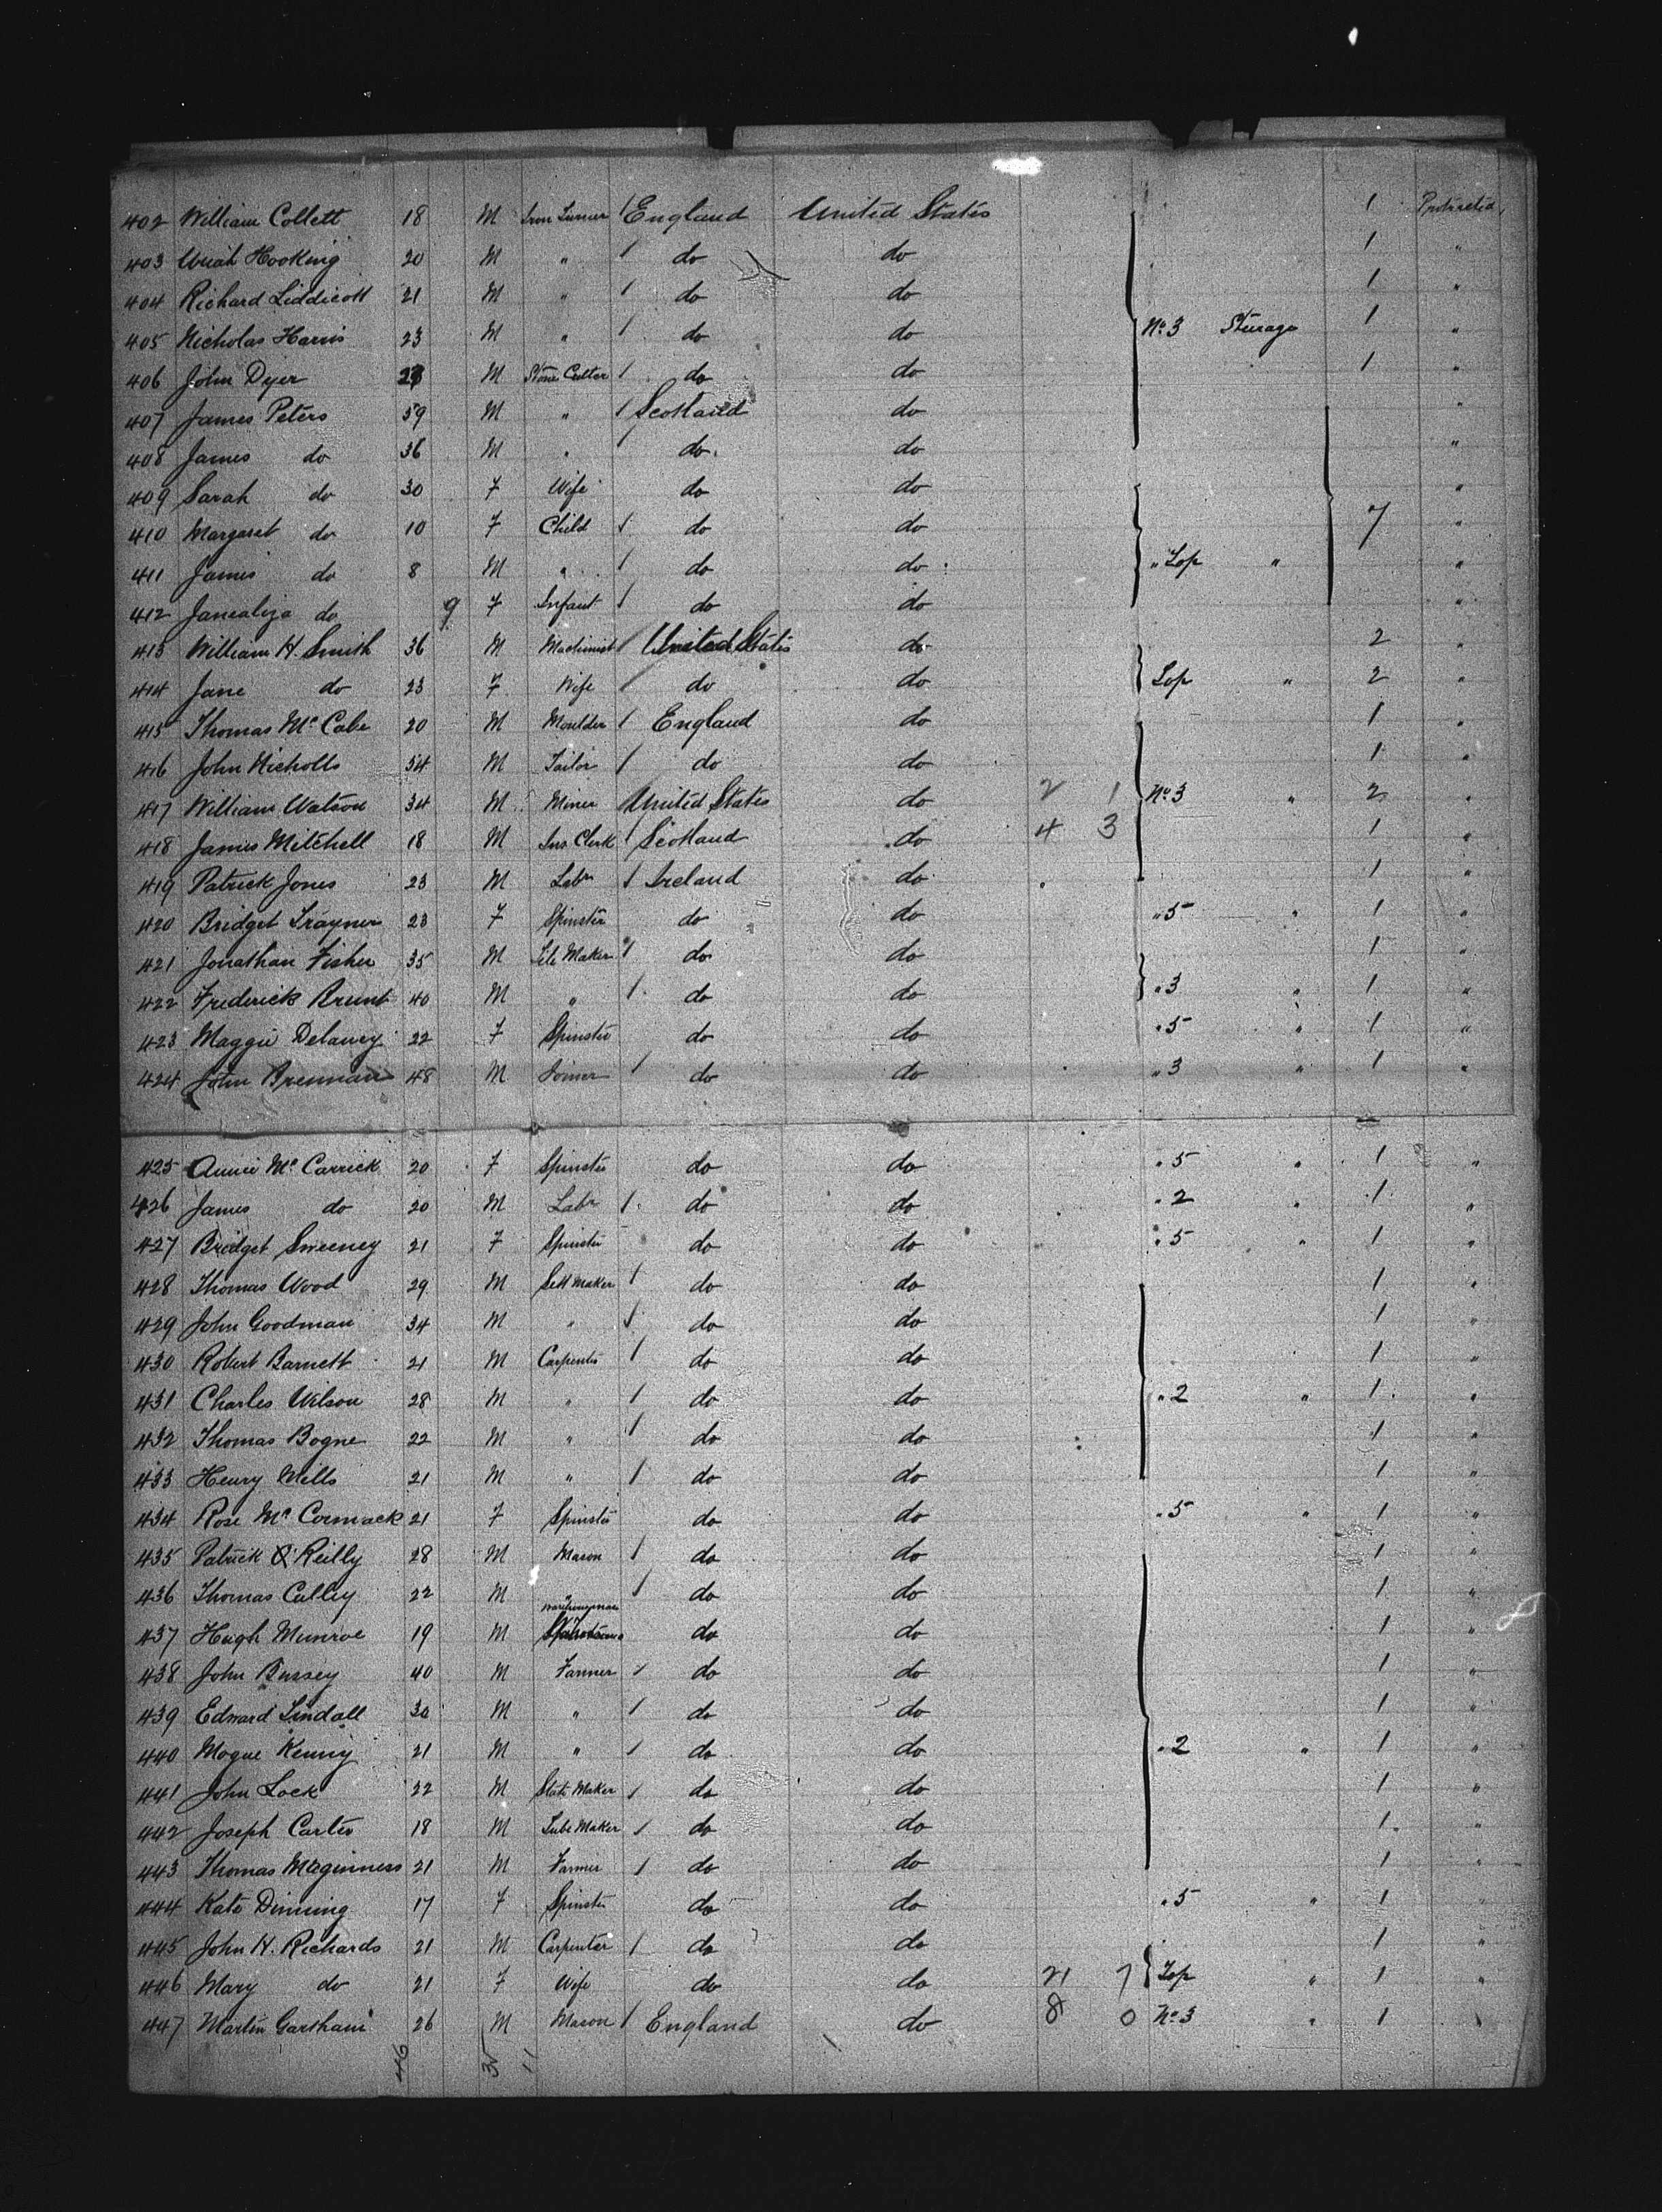 402 William Collett 18 M Iron Turner / England United States 1 Protracted
403 Uriah Hooking 20 M " / do do 1 "
404 Richard Liddicott 21 M " / do do 1 "
405 Nicholas Harris 23 M " / do do No. 3 Steerage 1 "
406 John Dyer M Stone Cutter / do do 1 "
407 James Peters 59 M " / Scotland do "
408 James do 36 M " do do "
409 Sarah do 30 F Wife do do "
410 Margaret do 10 F Child / do do 7 "
411 James do 8 M " / do do " Top " "
412 Janealiza do 9 F Infant / do do "
413 William H. Smith 36 M Machinist / United States do 2 "
414 Jane do 23 F Wife / do do Top " 2 "
415 Thomas McCabe 20 M Moulder / England do 1 "
416 John Nicholls 54 M Tailor / do do 1 "
417 William Watson 34 M Miner United States do 2 1 No. 3 " 2 "
418 James Mitchell 18 M Ins. Clerk / Scotland do 4 3 1 "
419 Patrick Jones 23 M Labr / Ireland do 1 "
420 Bridget Trayner 23 F Spinster do do " 5 " 1 "
421 Jonathan Fisher 35 M Tile Maker / do do 1 "
422 Frederick Brunt 40 M " / do do " 3 " 1 "
423 Maggie Delaney 22 F Spinster do do " 5 " 1 "
424 John Brennan 48 M Joiner / do do " 3 " 1 "
425 Annie McCarrick 20 F Spinster do do " 5 " 1 "
426 James do 20 M Labr / do do " 2 " 1 "
427 Bridget Sweeney 21 F Spinster do do " 5 " 1 "
428 Thomas Wood 29 M Sett Maker / do do 1 "
429 John Goodman 34 M " / do do 1 "
430 Robert Barnett 21 M Carpenter / do do 1 "
431 Charles Wilson 28 M " / do do " 2 " 1 "
432 Thomas Bogne 22 M " / do do 1 "
433 Henry Mills 21 M " / do do 1 "
434 Rose McCormack 21 F Spinster do do " 5 " 1 "
435 Patrick O'Reilly 28 M Mason / do do 1 "
436 Thomas Culley 22 M " / do do 1 "
437 Hugh Munroe 19 M Warehouseman do do 1 "
438 John Bussey 40 M Farmer / do do 1 "
439 Edward Lindall 30 M " / do do 1 "
440 Mogue Kenny 21 M " / do do " 2 " 1 "
441 John Lock 22 M Slate Maker / do do 1 "
442 Joseph Carter 18 M Tube Maker / do do 1 "
443 Thomas Maginness 21 M Farmer / do do 1 "
444 Kate Dinning 17 F Spinster do do " 5 " 1 "
445 John H. Richards 21 M Carpenter / do do 1 "
446 Mary do 21 F Wife do do 21 7 Top " 1 "
447 Martin Gartham 26 M Mason / England do 8 0 No. 3 " 1 "
46 35 11